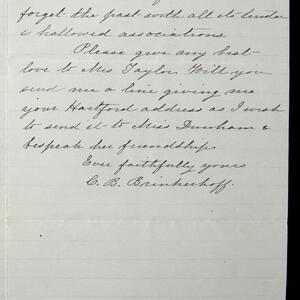 forget the past with all its tender
& hallowed associations.
Please give my best
love to Mrs Taylor. Will you
send me a line giving me
your Hartford address as I wish
to send it to Miss Dunham &
bespeak her friendship.
Ever faithfully yours
C. B. Brinkerhoff.